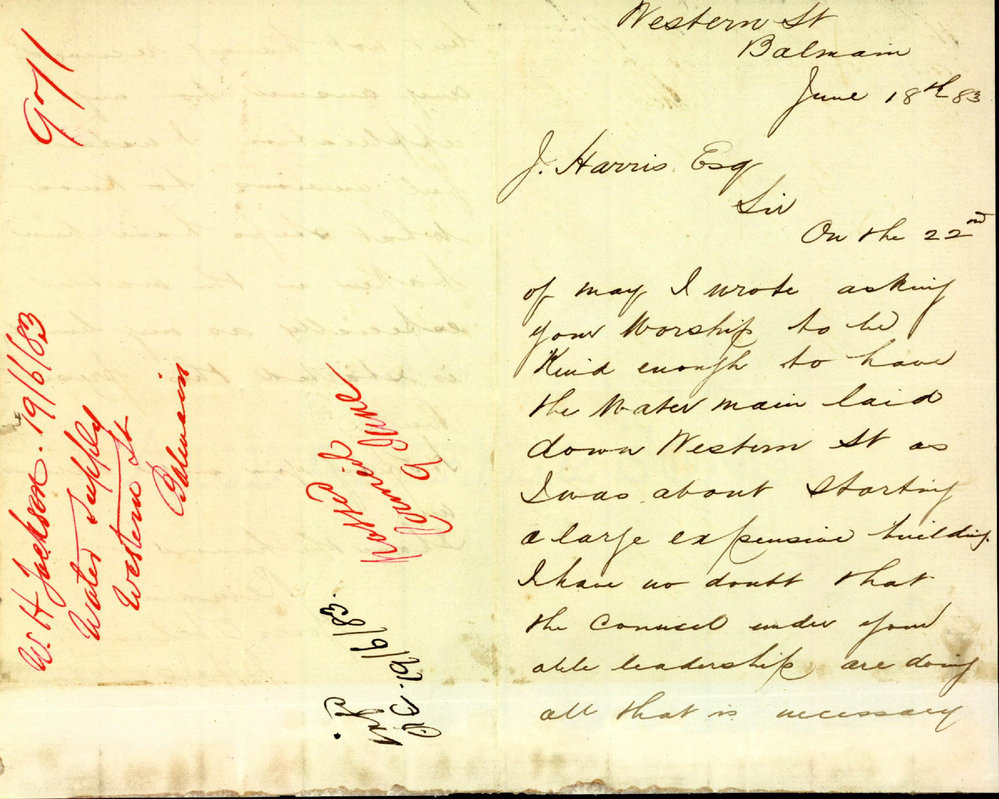 Western St
Balmain
June 18th 83
J. Harris Esq
Sir
On the 22nd
of may I wrote asking
your Worship to be
Kind enough to have
the Water main laid
down Western St as
I was about starting
a large expensive building
I have no doubt that
the Counsel under your
able leadership are doing
all that is necessary
971
W. H Jackson. 19/6/83
Water Supply
Western St
Balmain
Noted
Council
9 June
19/6/83.